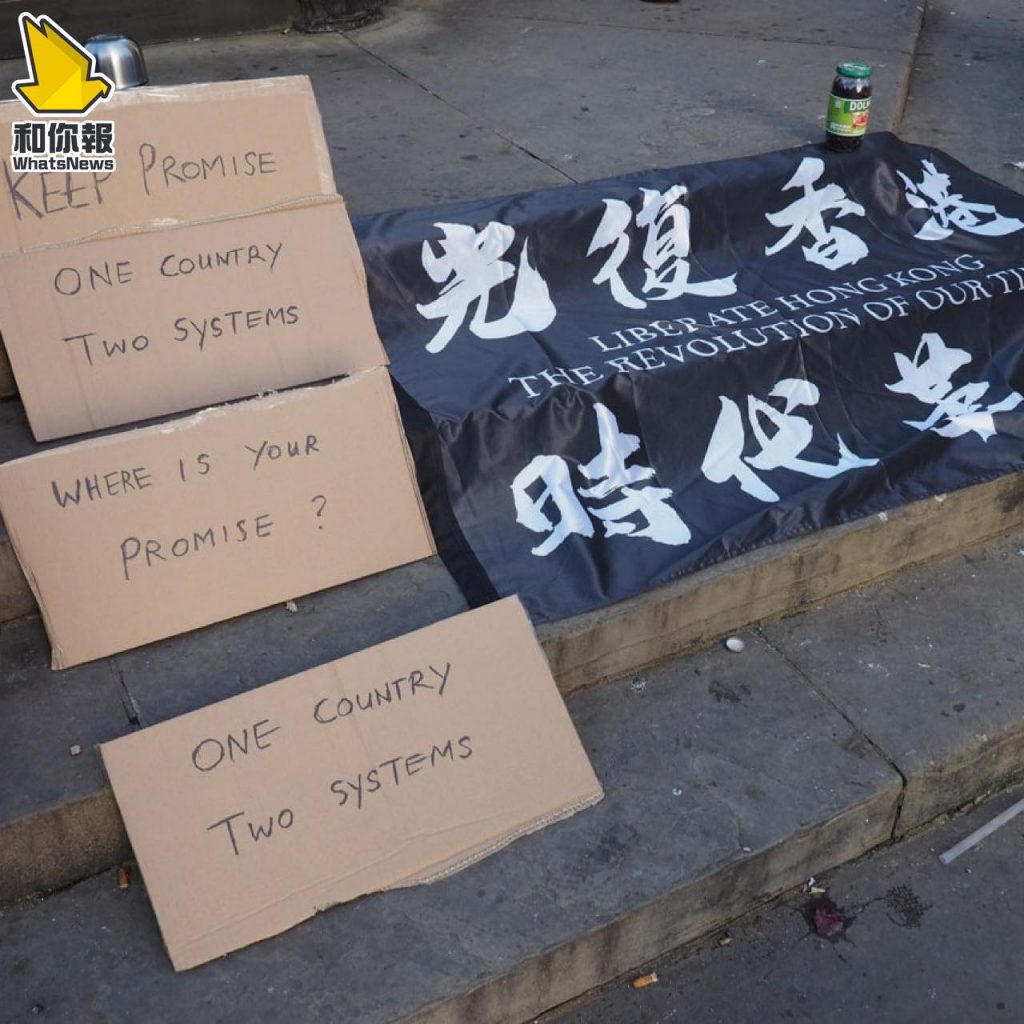 和你報
WhatsNews
KEEP PROMISE
ONE COUNTRY
TWO SYSTEMS
WHERE IS YOUR
PROMISE ?
ONE COUNTRY
TWO SYSTEMS
DOLM
光復香港
LIBERATE HONG KONG
THE REVOLUTION OF OUR TI
時代革